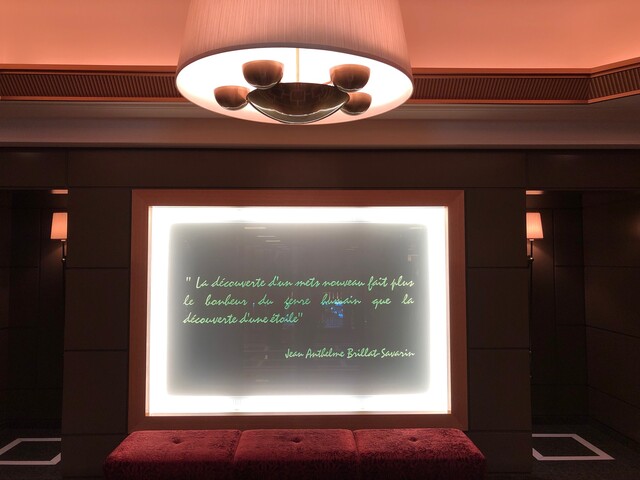 " La découverte d'un mets nouveau fait plus
le bonheur , du genre humain que la
découverte d'une étoile"
Jean Anthelme Brillat-Savarin